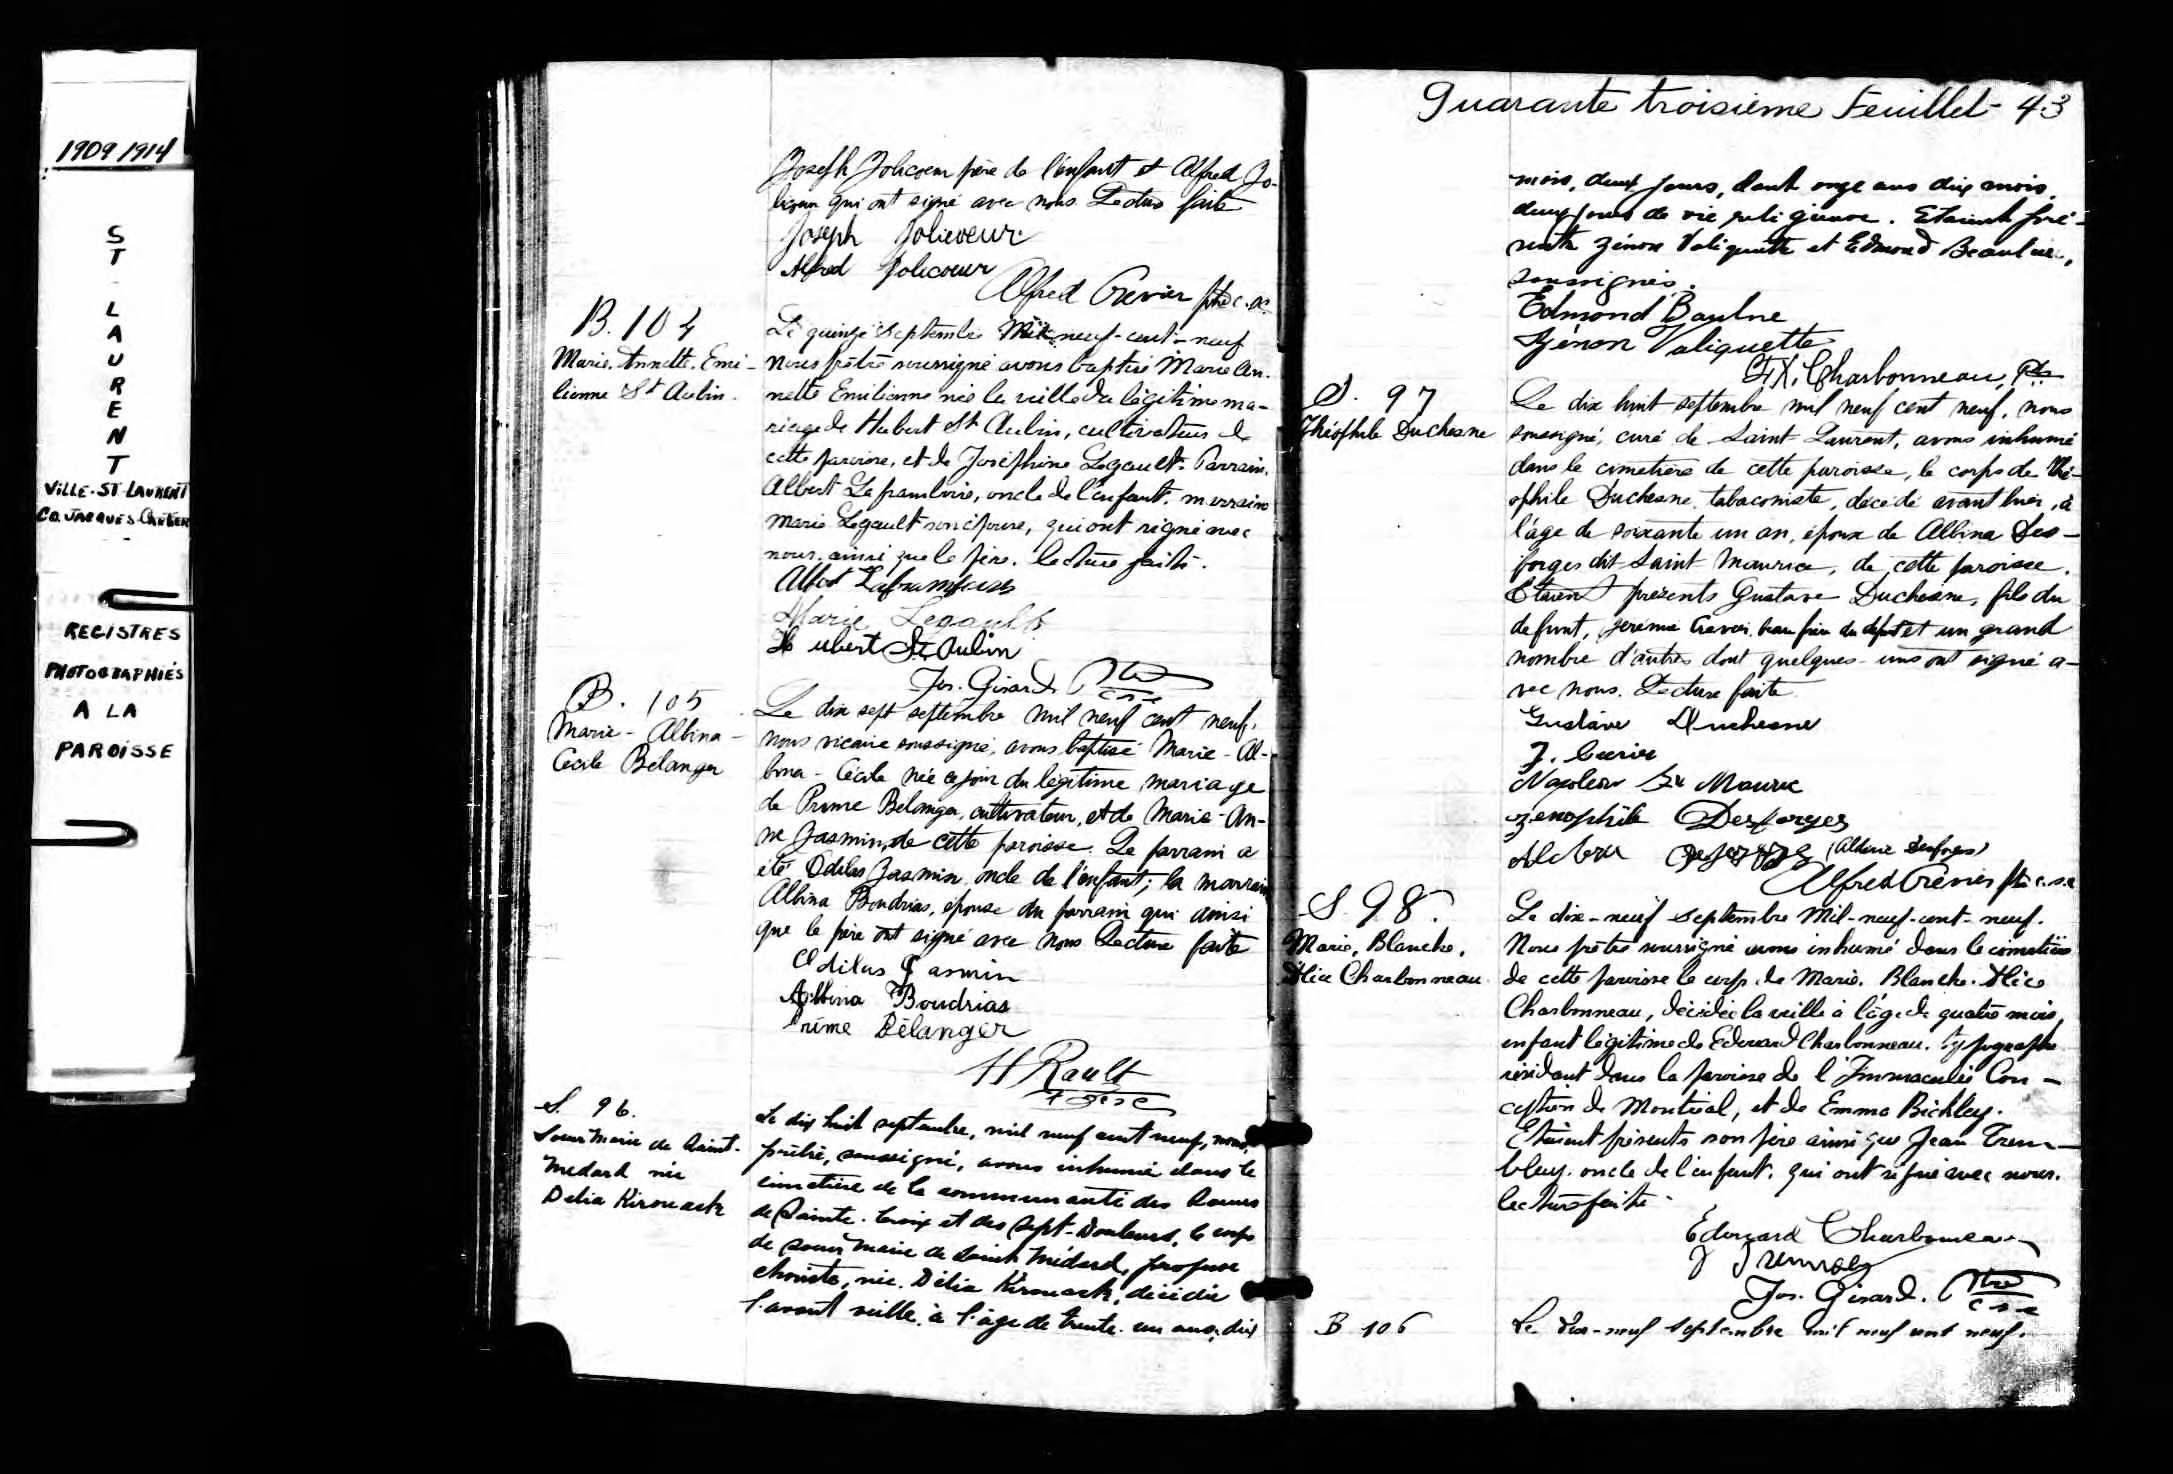 1909 1914
ST LAURENT
VILLE-ST LAURENT
CO. JACQUES-CARTIER
REGISTRES
PHOTOGRAPHIÉS
A LA
PAROISSE
Joseph Jolicoeur père de l'enfant et Alfred Jo-
licoeur qui ont signé avec nous Lecture faite
Joseph Jolicoeur
Alfred Jolicoeur
Alfred Crevier ptre c.s.c.
B. 104
Marie. Annette. Emi-
lienne St Aubin.
Le quinze septembre Mil neuf-cent-neuf
Nous prêtre soussigné avons baptisé Marie An-
nette Emilienne née la veille du légitime ma-
riage de Hubert St Aubin, cultivateur de
cette paroisse, et de Joséphine Legault. Parrain,
Albert Laframboise, oncle de l'enfant, marraine
Marie Legault son épouse, qui ont signé avec
nous ainsi que le père. lecture faite.
Albert Laframboise
Marie Legault
Hubert St Aubin
Jos. Girard Ptre csc
B. 105
Marie - Albina -
Cécile Bélanger
Le dix sept septembre mil neuf cent neuf,
nous vicaire soussigné, avons baptisé Marie - Al-
bina - Cécile née ce jour du légitime mariage
de Prime Bélanger, cultivateur, et de Marie-An-
ne Jasmin, de cette paroisse. Le parrain a
été Odilas Jasmin oncle de l'enfant; la marraine
Albina Boudrias, épouse du parrain qui ainsi
que le père ont signé avec nous Lecture faite
Odilas Jasmin
Albina Boudrias
Prime Bélanger
H Rault
ptre csc
S. 96.
Soeur Marie de Saint-
Médard née
Délia Kirouack
Le dix huit septembre, mil neuf cent neuf, nous,
prêtre, soussigné, avons inhumé dans le
cimetière de la communauté des Soeurs
de Sainte-Croix et des Sept-Douleurs, le corps
de soeur Marie de Saint Médard, professe
choriste, née Délia Kirouack, décédée
l'avant veille, à l'âge de trente-un ans, dix
Quarante troisième Feuillet - 43
mois, deux jours, dont onze ans dix mois,
deux jours de vie religieuse. Etaient pré-
sents Zénon Valiquette et Edmond Beaulne,
soussignés.
Edmond Baulne
Zénon Valiquette
F.X. Charbonneau, Ptre
S. 97
Théophile Duchesne
Le dix huit septembre mil neuf cent neuf, nous
soussigné, curé de Saint-Laurent, avons inhumé
dans le cimetière de cette paroisse, le corps de Thé-
ophile Duchesne tabaconiste, décédé avant hier, à
l'âge de soixante un an, époux de Albina Des-
forges dit Saint Maurice, de cette paroisse.
Etaient présents Gustave Duchesne, fils du
défunt, Jérémie Crevier, beau frère du défunt et un grand
nombre d'autres dont quelques-uns ont signé a-
vec nous. Lecture faite
Gustave Duchesne
J. Crevier
Napoléon St Mauric
Zenophile Desforges
Desforges (Albine Desforges)
Alfred Crevier ptre c.s.c
S. 98.
Marie, Blanche,
Alice Charbonneau
Le dix-neuf septembre Mil-neuf-cent-neuf.
Nous prêtre soussigné avons inhumé dans le cimetière
de cette paroisse le corps de Marie. Blanche. Alice
Charbonneau, décédée la veille à l'âge de quatre mois,
enfant légitime de Edouard Charbonneau, typographe
résidant dans la paroisse de l'Immaculée Con-
ception de Montréal, et de Emma Bickley.
Etaient présents son père ainsi que Jean Trem-
blay, oncle de l'enfant, qui ont signé avec nous.
lecture faite.
Edouard Charbonneau
J Tremblay
Jos. Girard. Ptre csc
B 106
Le dix-neuf septembre mil neuf cent neuf.